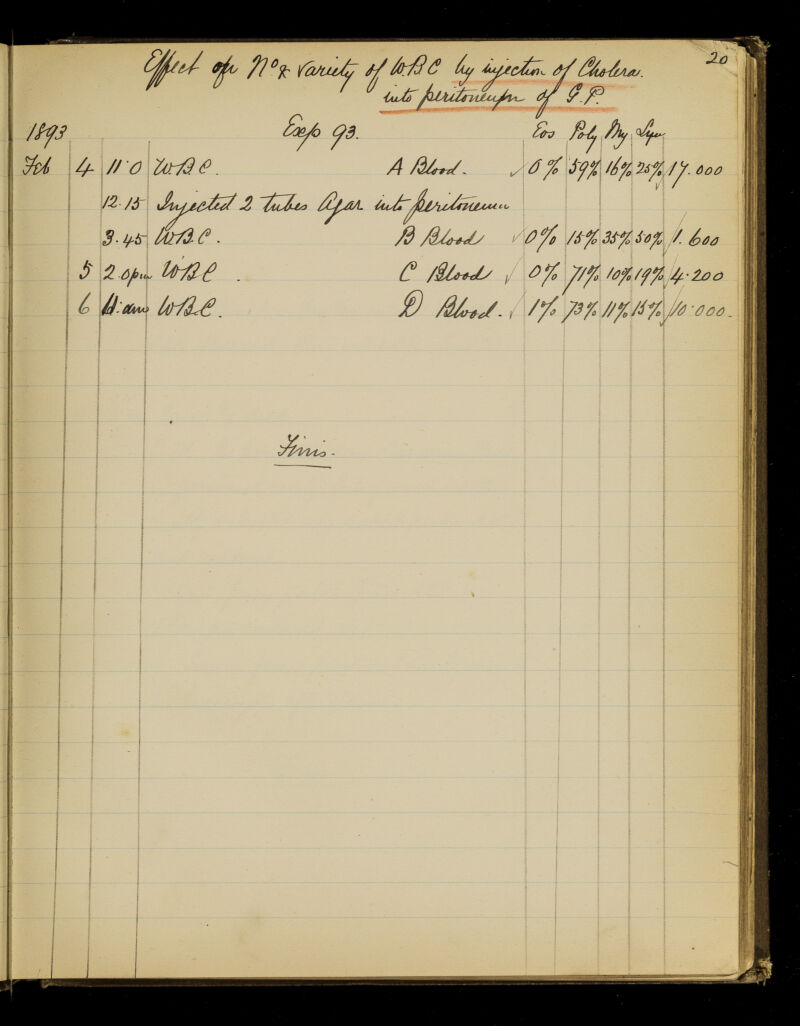 20
Effect on No & variety of W.B.C by injection of Cholera.
into peritoneum of G.P.
1893 Exp 93. Eos Poly My Lym
Feb 4 11.0 W.B.C. A Blood. ✓ 0% 59% 16% 25% 17.000
12.15 Injected 2 tubes Agar into peritoneum
3.45 W.B.C. B Blood ✓ 0% 15% 35% 50% 1.600
5 2.0pm W.B.C. C Blood ✓ 0% 71% 10% 19% 4.200
6 11.am W.B.C. D Blood. ✓ 1% 73% 11% 15% 10.000.
Finis.